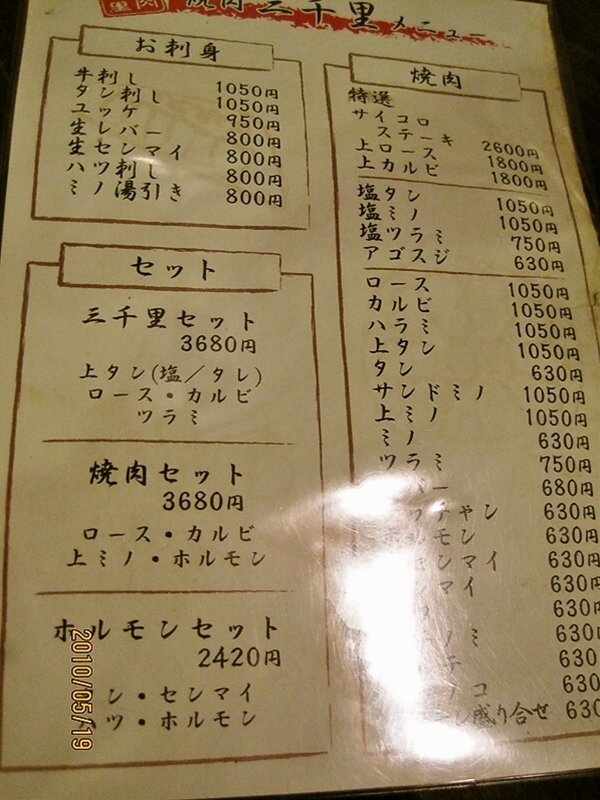 焼肉三千里メニュー
お刺身
牛刺し 1050円
タン刺し 1050円
ユッケ 950円
生レバー 800円
生センマイ 800円
ハツ刺し 800円
ミノ湯引き 800円
セット
三千里セット
3680円
上タン(塩/タレ)
ロース・カルビ
ツラミ
焼肉セット
3680円
ロース・カルビ
上ミノ・ホルモン
ホルモンセット
2420円
ン・センマイ
ハツ・ホルモン
焼肉
特選
サイコロ
ステーキ 2600円
上ロース 1800円
上カルビ 1800円
塩タン 1050円
塩ミノ 1050円
塩ツラミ 750円
アゴスジ 630円
ロース 1050円
カルビ 1050円
ハラミ 1050円
上タン 1050円
タン 630円
サンドミノ 1050円
上ミノ 1050円
ミノ 630円
ツラミ 750円
バー 680円
ッチャン 630円
ホルモン 630円
センマイ 630円
マイ 630円
630円
ミ 630円
チ 630円
コ 630
盛り合せ 630
2010/05/19